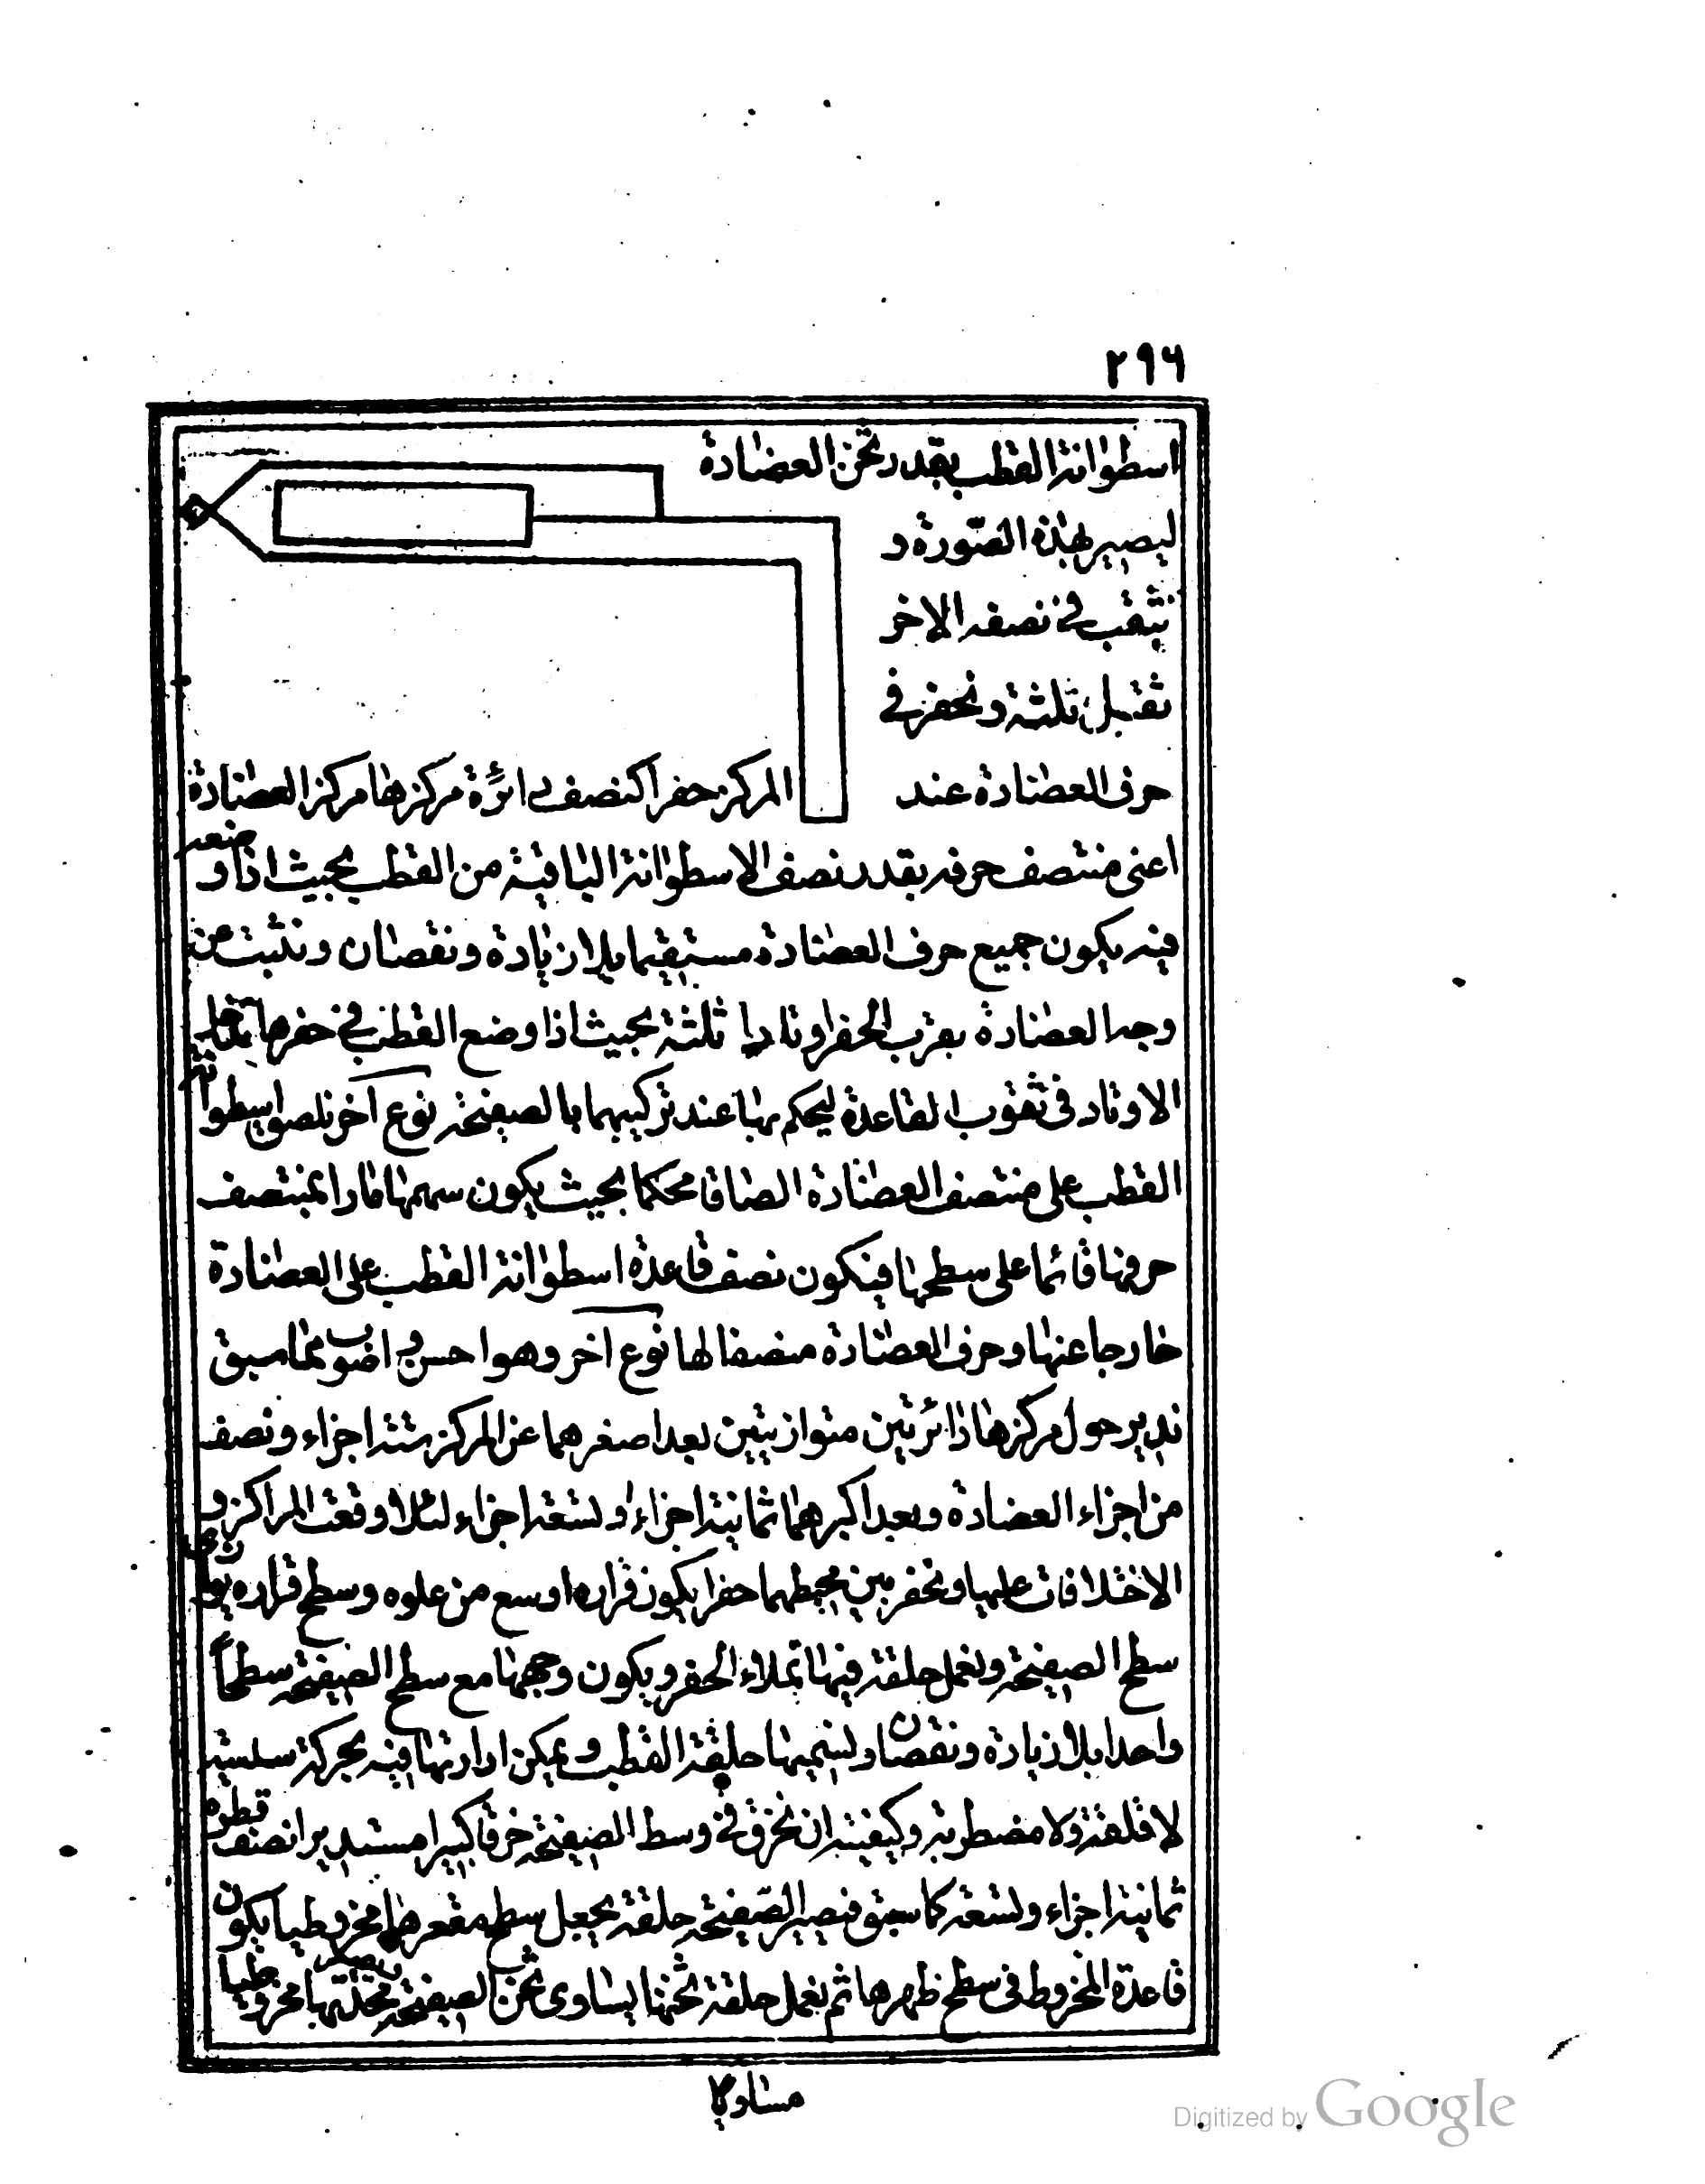 ٢٩٦
اسطوانة القطب بقدر ثخن العضادة
ليصير بهذه الصورة و
نثقب فى نصفه الاخر
ثقبا ثلثة ونحفر فى
حرف العضادة عند المركز حفرا كنصف دائرة مركزها مركز العضادة
اعنى منتصف حرفه بقدر نصف الاسطوانة الباقية من القطب بحيث اذا وضعه
فيه يكون جميع حرف العضادة مستقيما بلا زيادة ونقصان ونثبت عن
وجه العضادة بقرب الحفر اوتادا ثلثة بحيث اذا وضع القطب فى حفرها تدخل
الاوتاد فى ثقوب القاعدة ليحكم بها عند تركيبهما بالصفيحة نوع آخر نلصق اسطوانة
القطب على منتصف العضادة الصاقا محكما بحيث يكون سهمها مارا بمنتصف
حرفها قائما على سطحها فيكون نصف قاعدة اسطوانة القطب على العضادة
خارجا عنها وحرف العضادة منصفا لها نوع اخر وهو احسن و اضوب مما سبق
ندير حول مركزها دائرتين متوازيتين بعد اصغرهما عن المركز ستة اجزاء ونصف
من اجزاء العضادة وبعد اكبرهما ثمانية اجزاء او تسعة اجزاء لئلا وقعت المراكز و
الاختلافات عليها ونحفر بين محيطهما حفرا يكون قراره اوسع من علوه وسطح قراره يوازى
سطح الصفيحة ونعمل حلقة فيها تملاء الحفر ويكون وجهها مع سطح الصفيحة سطحاً
واحدا بلا زيادة ونقصان ولنسميها حلقة القطب ويمكن ادارتها فيه بحركة سلسة
لا قلقة ولا مضطربة وكيفيته ان نخرق فى وسط الصفيحة خرقا كبيرا مستديرا نصف قطره
ثمانية اجزاء وتسعة كما سبق فتصير الصّفيحة حلقة نجعل سطح مقعرها مخروطيا يكون
قاعدة المخروط فى سطح ظهرها ثم نعمل حلقة ثخنها يساوى ثخن الصفيحة محدبها مخروطيا
مساويا
Digitized by Google